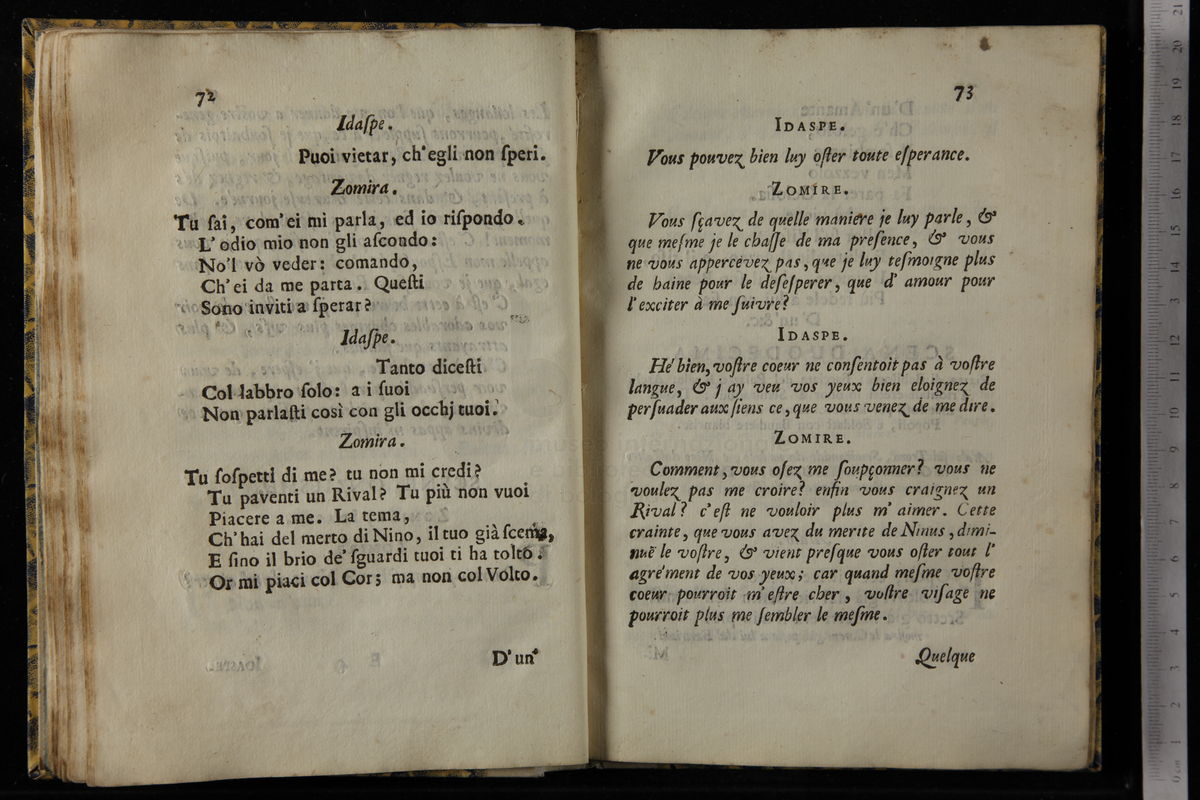 72
Idaſpe.
Puoi vietar, ch'egli non ſperi.
Zomira.
Tu ſai, com'ei mi parla, ed io riſpondo.
L'odio mio non gli aſcondo:
No'l vò veder: comando,
Ch'ei da me parta. Queſti
Sono inviti a ſperar?
Idaſpe.
Tanto diceſti
Col labbro ſolo: a i ſuoi
Non parlaſti così con gli occhj tuoi.
Zomira.
Tu ſoſpetti di me? tu non mi credi?
Tu paventi un Rival? Tu più non vuoi
Piacere a me. La tema,
Ch'hai del merto di Nino, il tuo già ſcema,
E ſino il brio de' ſguardi tuoi ti ha tolto.
Or mi piaci col Cor; ma non col Volto.
D'un'
73
IDASPE.
Vous pouvez bien luy oſter toute eſperance.
ZOMIRE.
Vous ſçavez de quelle maniere je luy parle, &
que meſme je le chaſſe de ma preſence, & vous
ne vous appercevez pas, que je luy teſmoigne plus
de haine pour le deſeſperer, que d' amour pour
l'exciter à me ſuivre?
IDASPE.
Hé bien, voſtre coeur ne conſentoit pas à voſtre
langue, & j ay veu vos yeux bien eloignez de
perſuader aux ſiens ce, que vous venez de me dire.
ZOMIRE.
Comment, vous oſez me ſoupçonner? vous ne
voulez pas me croire? enfin vous craignez un
Rival? c'eſt ne vouloir plus m' aimer. Cette
crainte, que vous avez du merite de Ninus, dimi-
nuë le voſtre, & vient preſque vous oſter tout l'
agrément de vos yeux; car quand meſme voſtre
coeur pourroit m'eſtre cher, voſtre viſage ne
pourroit plus me ſembler le meſme.
Quelque